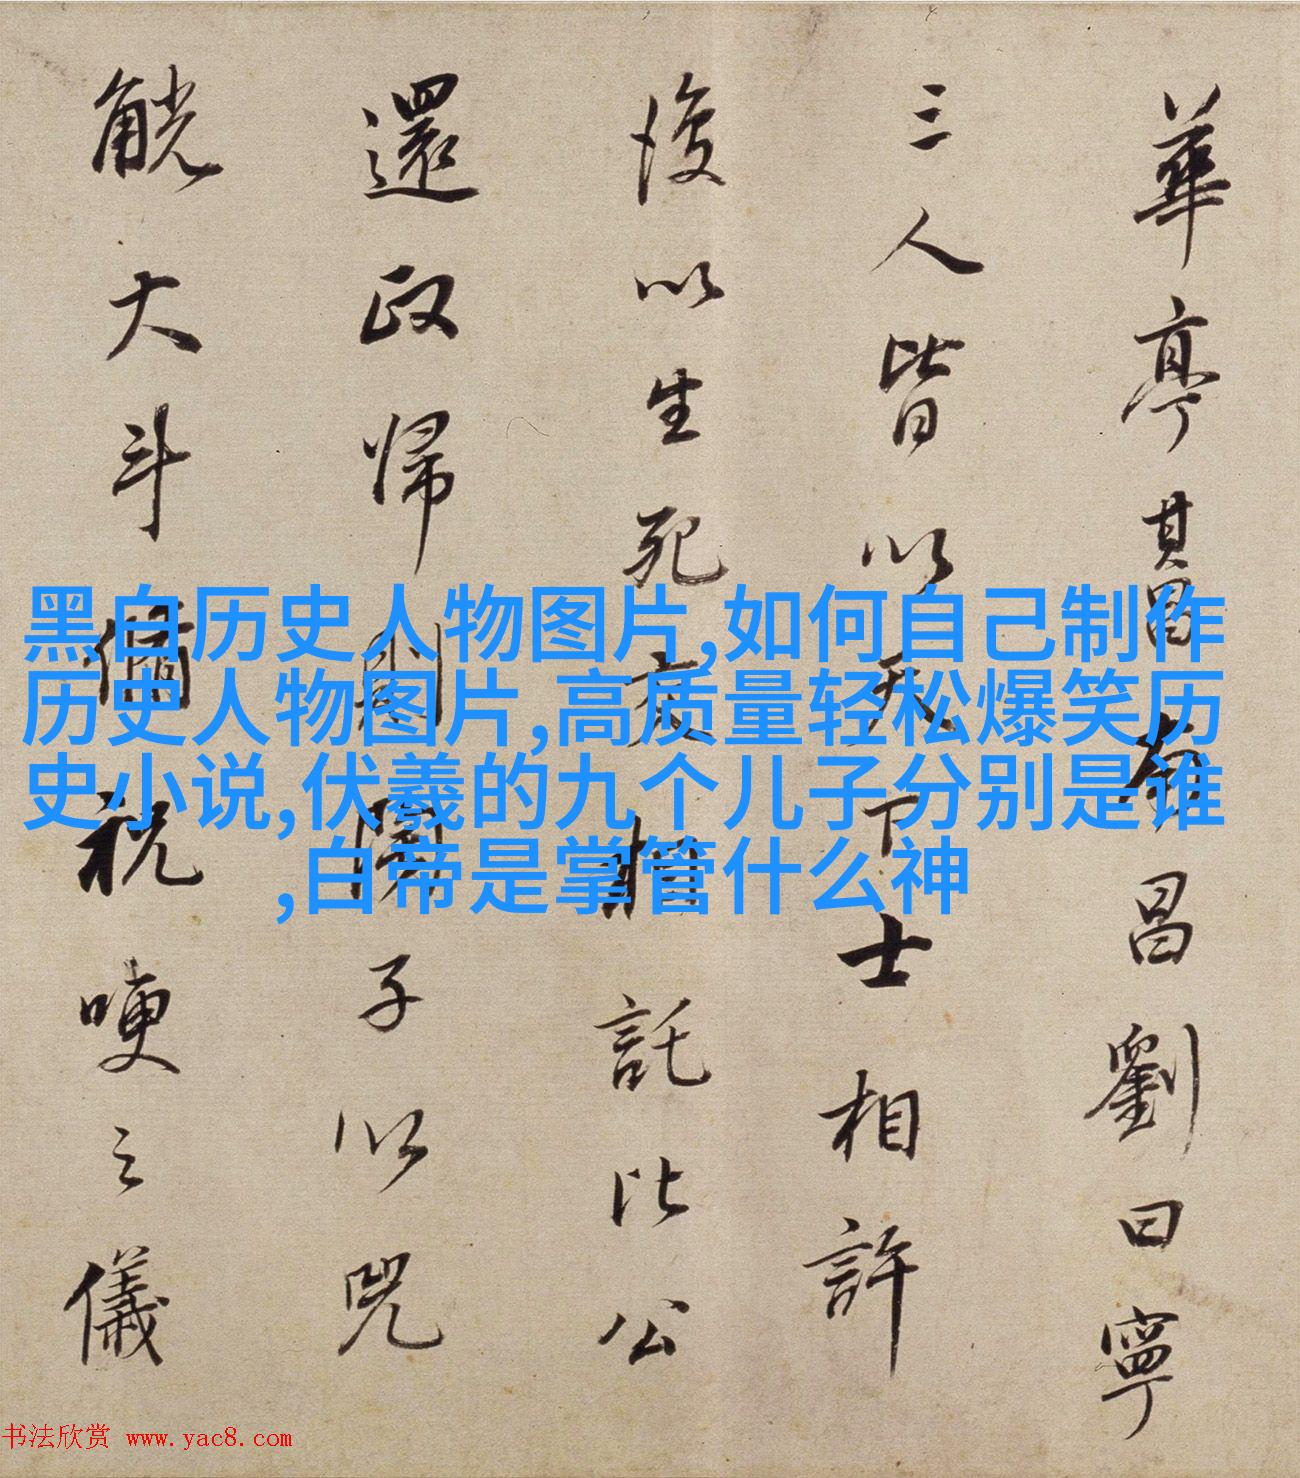 華亭其昌南昌劉曰寧
三人皆以天下士相許
後以生死交相託比公
還政歸則子以兕
觥大斗祝哽之儀
黑白历史人物图片,如何自己制作
历史人物图片,高质量轻松爆笑历
史小说,伏羲的九个儿子分别是谁
,白帝是掌管什么神
书法欣赏 www.yac8.com